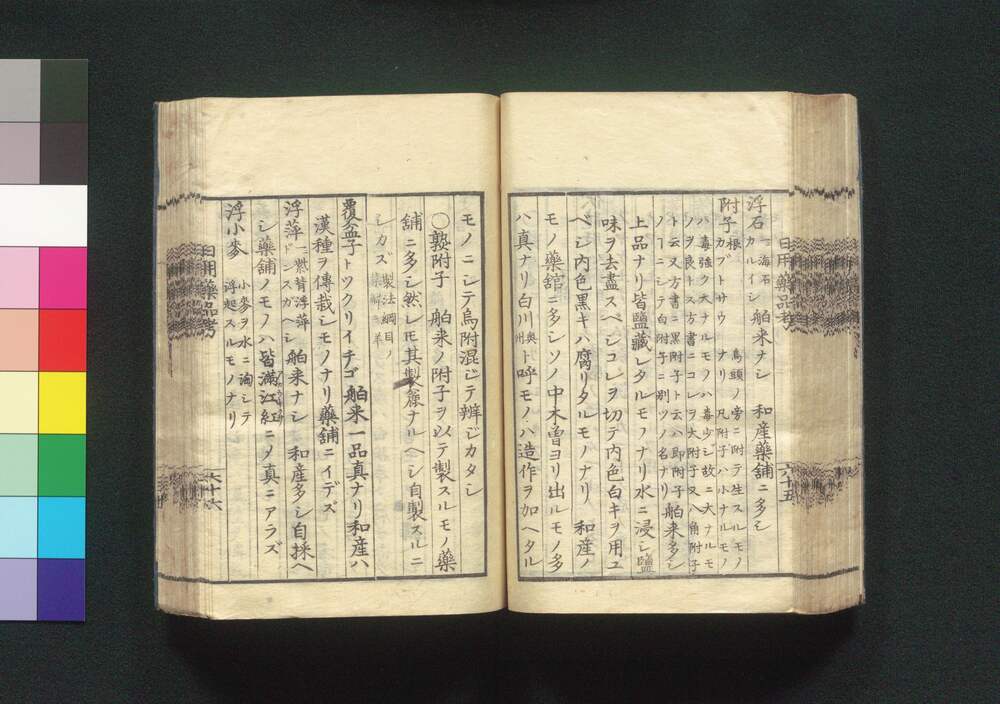 浮石 一海石 カルイシ 舶来ナシ 和産藥舗ニ多シ
附子 根 カブトサウ ナリ 烏頭ノ旁ニ附テ生スルモノ
凡附子ハ小ナルモノ
ハ毒強ク大ナルモノハ毒少シ故ニ大ナルモ
ノヲ良トス方書ニコレヲ大附子又八角附子
ト云又方書ニ黒附子ト云ハ即附子
ノヿニシテ白附子ニ別ツノ名ナリ 舶来多シ
上品ナリ皆鹽藏シタルモノナリ水ニ浸シ鹽
味ヲ去盡スベシコレヲ切テ内色白キヲ用ユ
ベシ内色黒キハ腐リタルモノナリ 和産ノ
モノ藥舘ニ多シソノ中木曽ヨリ出ルモノ多
ハ真ナリ白川奥州ト呼モノハ造作ヲ加ヘタル
日用藥品考 六十五
モノニシテ烏附混ジテ辨ジカタシ
〇熟附子 舶来ノ附子ヲ以テ製スルモノ藥
舗ニ多シ然レ𪜈其製麁ナルヘシ自製スルニ
シカズ 製法綱目ノ
覆盆子 トツクリイチゴ 舶来一品真ナリ和産ハ
漢種ヲ傳栽シモノナリ藥舗ニイデズ
浮萍 舶来ナシ 和産多シ自採ヘ
シ藥舗ノモノハ皆満江紅ニメ真ニアラズ
浮小麥 小麥ヲ水ニ淘シテ
浮起スルモノナリ
日用藥品考 六十六